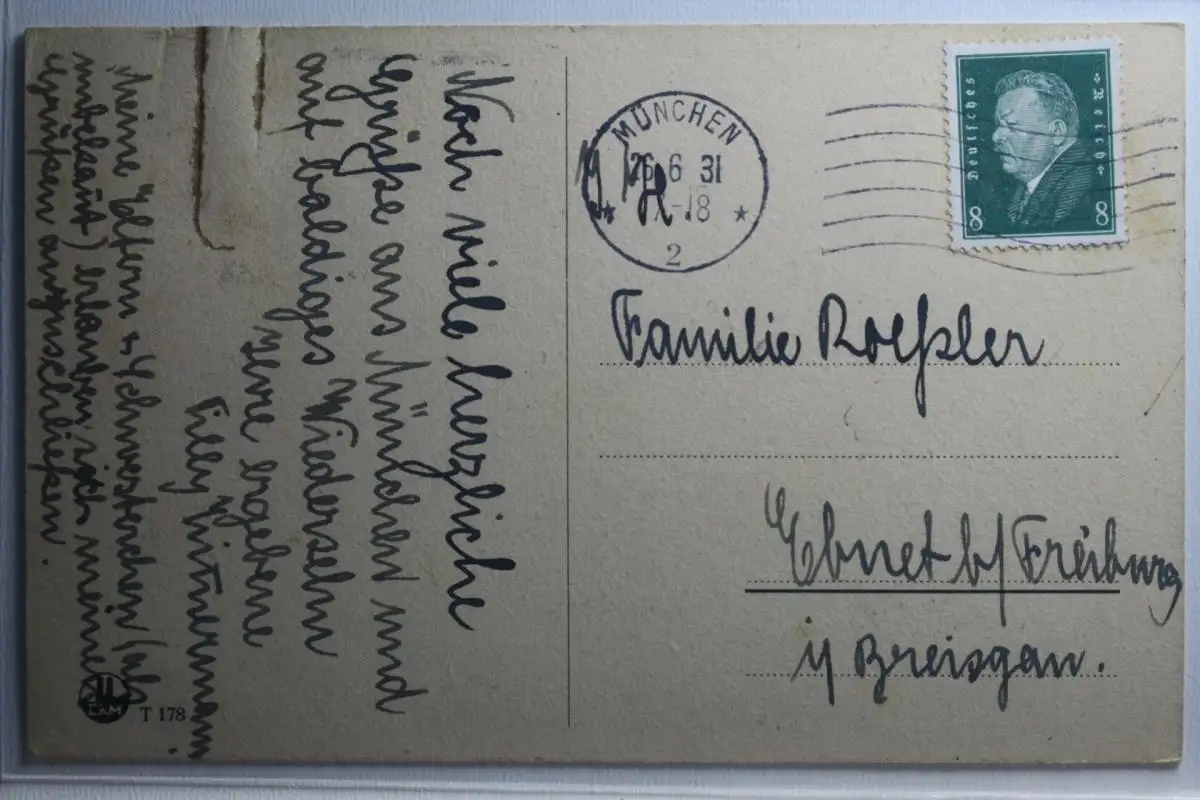 Noch viele herzliche
Grüße aus München und
auf baldiges Wiedersehn
Ihre ergebene
Zilly Zimmermann.
Meine Eltern u. Schwesterchen (als
unbekannt) erlauben sich meinen
Grüßen anzuschließen.
T 178
MÜNCHEN
26 6 31
-18
2
Deutsches Reich
8 8
Familie Roeßler
Ebnet b/ Freiburg
i/ Breisgau.